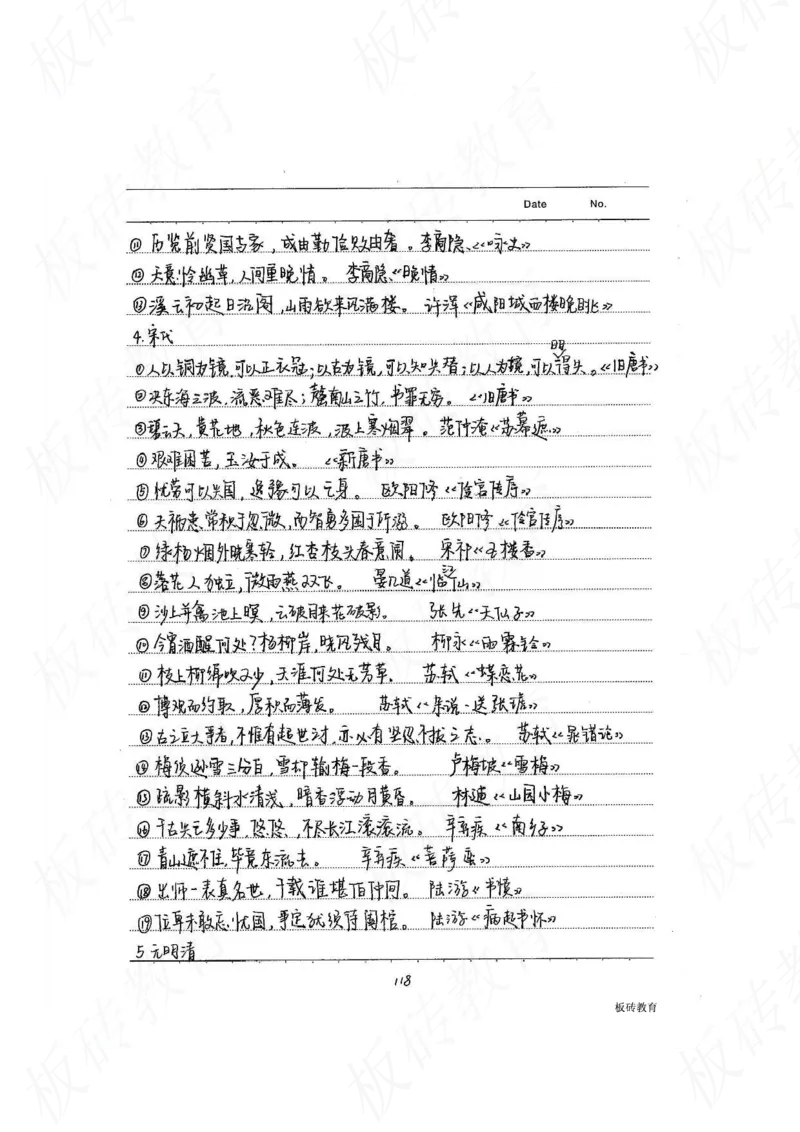 Date No.
⑪ 历览前贤国与家，成由勤俭败由奢。李商隐《咏史》
⑫ 天意怜幽草，人间重晚情。 李商隐《晚情》
⑬ 溪云初起日沉阁，山雨欲来风满楼。 许浑《咸阳城西楼晚眺》
4.宋代
①人以铜为镜，可以正衣冠；以古为镜，可以知兴替；以人为镜，可以明得失。《旧唐书》
②决东海之波，流恶难尽；罄南山之竹，书罪无穷。《旧唐书》
③碧云天，黄花地，秋色连波，波上寒烟翠。范仲淹《苏幕遮》
④艰难困苦，玉汝于成。 《新唐书》
⑤忧劳可以兴国，逸豫可以亡身。 欧阳修《伶官传序》
⑥夫祸患常积于忽微，而智勇多困于所溺。 欧阳修《伶官传序》
⑦绿杨烟外晓寒轻，红杏枝头春意闹。 宋祁《玉楼春》
⑧落花人独立，微雨燕双飞。 晏几道《临江仙》
⑨沙上并禽池上暝，云破月来花破影。 张先《天仙子》
⑩今宵酒醒何处？杨柳岸，晓风残月。 柳永《雨霖铃》
⑪枝上柳绵吹又少，天涯何处无芳草。 苏轼《蝶恋花》
⑫博观而约取，厚积而薄发。 苏轼《杂说·送张琥》
⑬古之立大事者，不惟有超世之才，亦必有坚忍不拔之志。 苏轼《晁错论》
⑭梅须逊雪三分白，雪却输梅一段香。 卢梅坡《雪梅》
⑮疏影横斜水清浅，暗香浮动月黄昏。 林逋《山园小梅》
⑯千古兴亡多少事，悠悠，不尽长江滚滚流。 辛弃疾《南乡子》
⑰青山遮不住，毕竟东流去。 辛弃疾《菩萨蛮》
⑱出师一表真名世，千载谁堪伯仲间。 陆游《书愤》
⑲位卑未敢忘忧国，事定犹须待阖棺。 陆游《病起书怀》
5 元明清
118
板砖教育